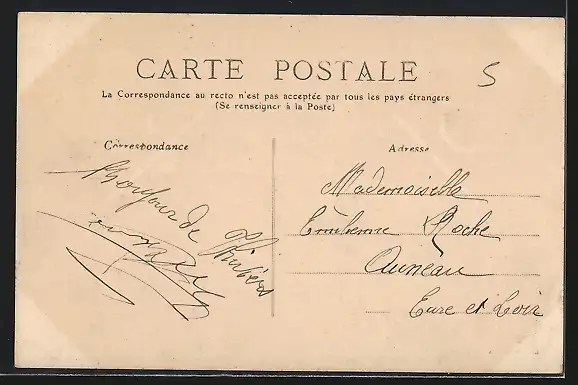 CARTE POSTALE
5
La Correspondance au recto n'est pas acceptée par tous les pays étrangers
(Se renseigner à la Poste)
Correspondance
Bonjour de
Adresse
Mademoiselle
Emilienne Roche
Auneau
Eure et Loir